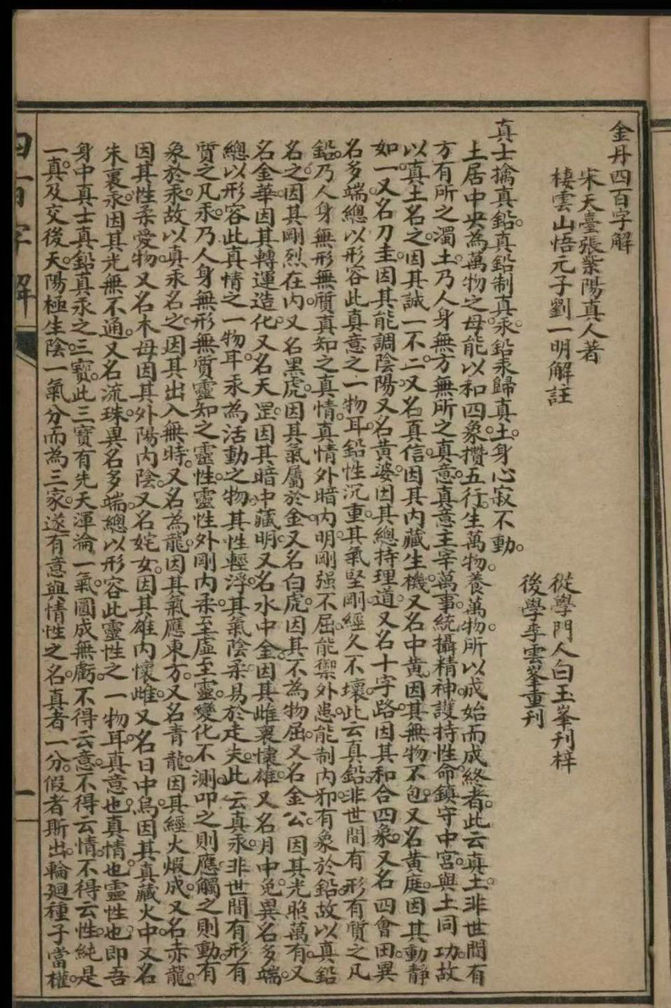 金丹四百字解
宋天臺張紫陽真人著　從學門人白玉峯刊梓
棲雲山悟元子劉一明解註　後學李雲峯重刊
真土擒真鉛。真鉛制真汞。鉛汞歸真土。身心寂不動。
土居中央為萬物之母。能以和四象。攢五行。生萬物。養萬物。所以成始而成終者。此云真土。非世間有
方有所之濁土。乃人身無方無所之真意。真意主宰萬事。統攝精神。護持性命。鎮守中宮。與土同功。故
以真土名之。因其誠一不二。又名真信。因其內藏生機。又名中黃。因其無物不包。又名黃庭。因其動靜
如一。又名刀圭。因其能調陰陽。又名黃婆。因其總持理道。又名十字路。因其和合四象。又名四會田。異
名多端。總以形容此真意之一物耳。鉛性沉重。其氣堅剛。經久不壞。此云真鉛。非世間有形有質之凡
鉛。乃人身無形無質真知之真情。真情外暗內明。剛强不屈。能禦外患。能制內邪。有象於鉛。故以真鉛
名之。因其剛烈在內。又名黑虎。因其氣屬於金。又名白虎。因其不為物屈。又名金公。因其光照萬有。又
名金華。因其轉運造化。又名天罡。因其暗中藏明。又名水中金。因其雌裏懷雄。又名月中兔。異名多端。
總以形容此真情之一物耳。汞為活動之物。其性輕浮。其氣陰柔。易於走失。此云真汞。非世間有形有
質之凡汞。乃人身無形無質靈知之靈性。靈性外剛內柔。至虛至靈。變化不測。叩之則應。觸之則動。有
象於汞。故以真汞名之。因其出入無時。又名為龍。因其氣應東方。又名青龍。因其經火煅成。又名赤龍。
因其性柔愛物。又名木母。因其外陽內陰。又名姹女。因其雄內懷雌。又名日中烏。因其真藏火中。又名
朱裏汞。因其光無不通。又名流珠。異名多端。總以形容此靈性之一物耳。真意也。真情也。靈性也。即吾
身中真土真鉛真汞之三寶。此三寶有先天渾淪一氣。圓成無虧。不得云意。不得云情。不得云性。純是
一真。及交後天。陽極生陰。一氣分而為三家。遂有意與情性之名。真者一分。假者斯出。輪迴種子當權。
四百字解　一